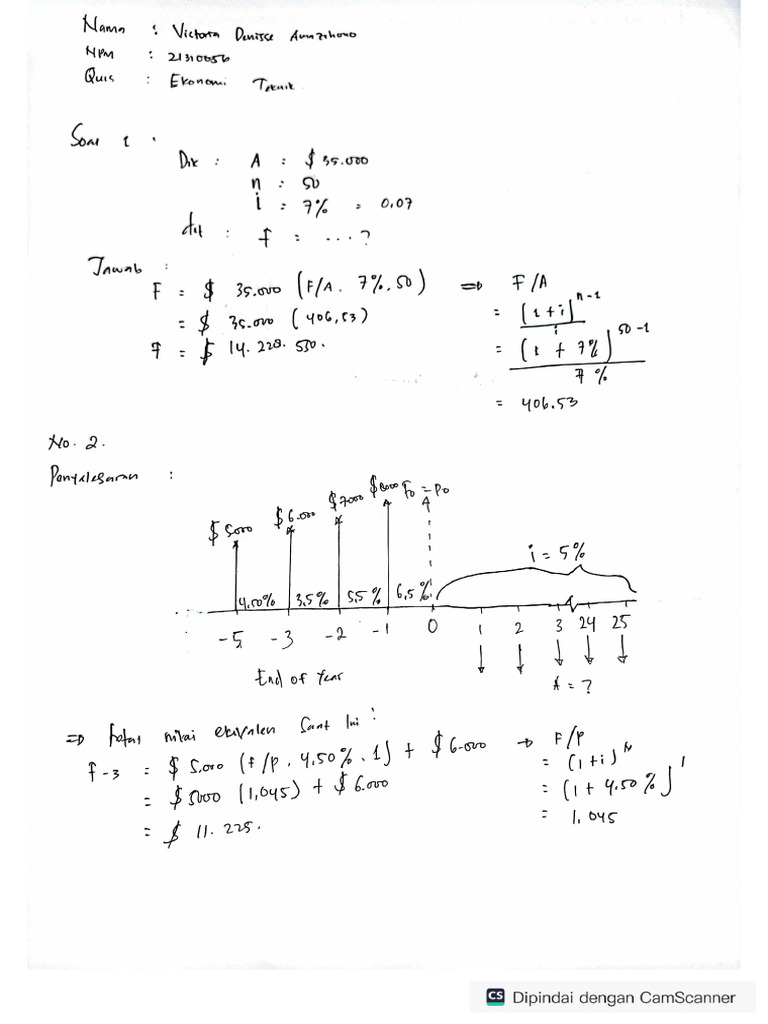 Nama : Victoria Denisse
NPM : 21310056
Quis : Ekonomi Teknik
Soal 1 :
Dik : A : $ 35.000
n : 50
i : 7% = 0,07
dit : f = ...?
Jawab :
F = $ 35.000 (F/A. 7%. 50) ⇒ F/A
= $ 35.000 (406,53) = (1+i)^n-1 / i
F = $ 14.228.550. = (1 + 7%)^50-1 / 7%
= 406.53
No. 2.
Penyelesaian :
$ 5000 $ 6.000 $ 7000 $ 8000 F0 = P0
i = 5%
4.50% 3,5% 5,5% 6,5%
-5 -3 -2 -1 0 1 2 3 24 25
End of Year A = ?
⇒ total nilai ekivalen Saat Ini :
F-3 = $ 5.000 (f/p. 4,50%. 1) + $ 6.000 → F/P
= $ 5000 (1,045) + $ 6.000 = (1+i)^N
= $ 11.225. = (1 + 4,50%)^1
= 1,045
CS Dipindai dengan CamScanner